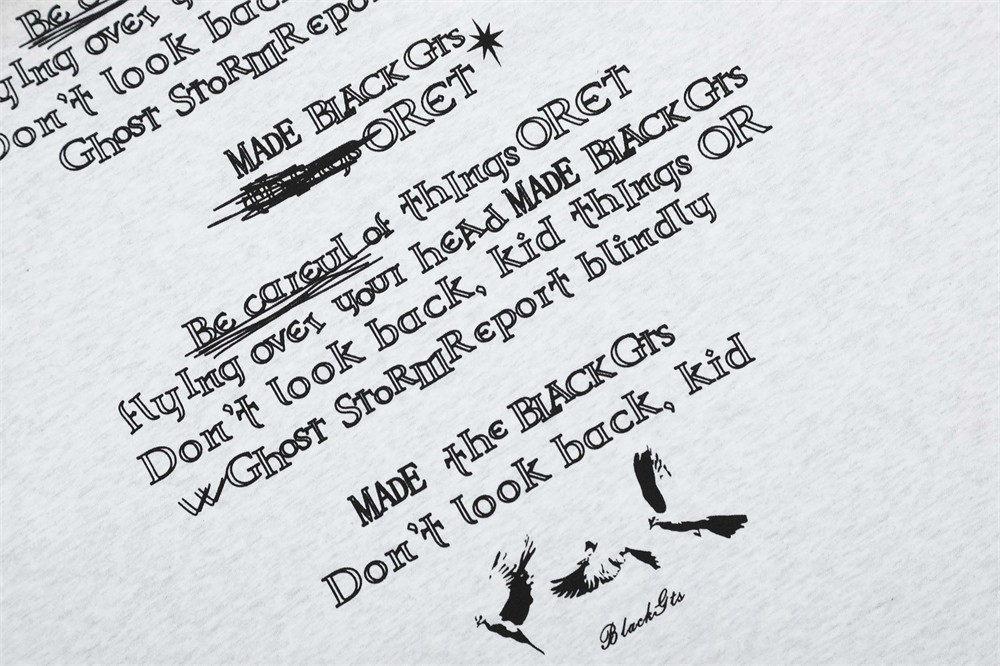 Be c
ying over y
Don't look bac
Ghost StoRmRepor
MADE BLACKGts
ORET
Be careul of thIngs ORET
flyIng over your head MADE BLACKGts
Don't look back, kid thIngs OR
w/Ghost StoRmReport blindly
MADE the BLACKGts
Don't look back, kid
BlackGts